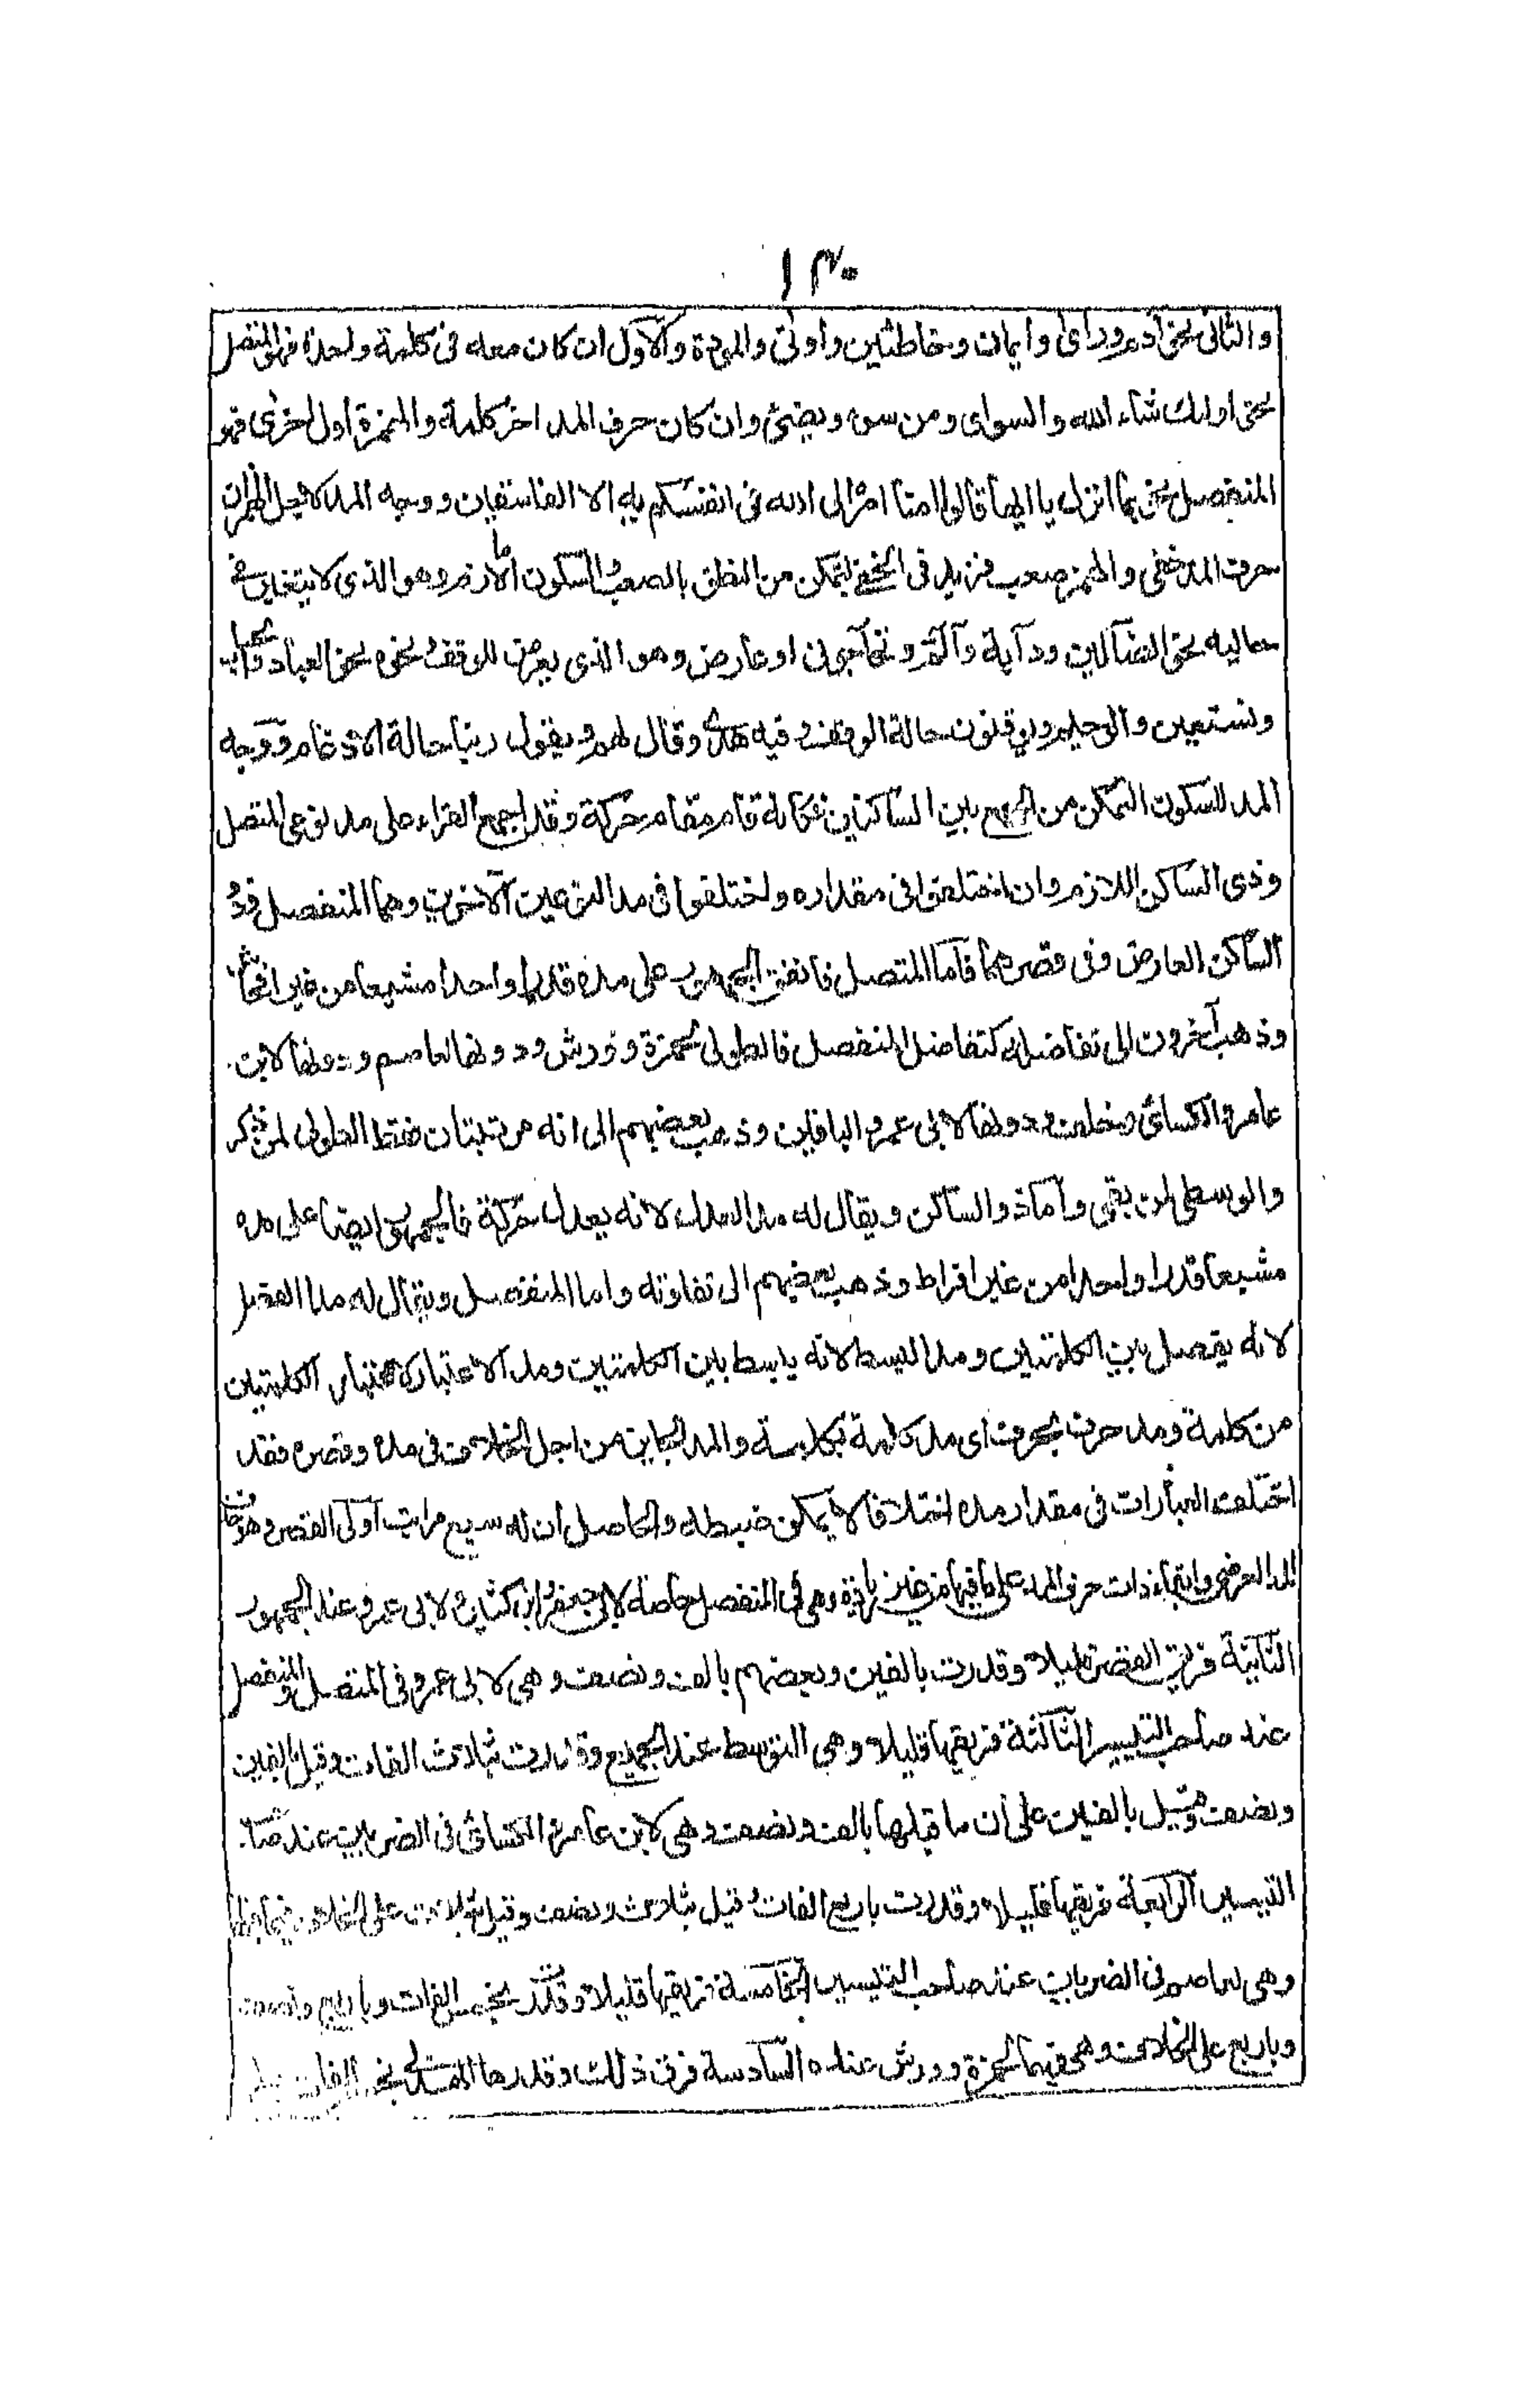 ١٣٠
والثانى نحو آدم وراى وايمان وخاطئين واوتى والموءدة والاول ان كان معه فى كلمة واحدة فهو المتصل
نحو اولئك شاء الله والسواى ومن سوء ويضئ وان كان حرف المد اخر كلمة والهمزة اول اخرى فهو
المنفصل نحو بما انزل يا ايها قالوا امنا امره الى الله فى انفسكم به الا الفاسقين ووجه المد لاجل الهمز ان
حرف المد خفى والهمز صعب فزيد فى الخفى ليتمكن من النطق بالصعب والسكون اما لازم وهو الذى لا يتغير فى
حاليه نحو الضآلين ودآبة وآلم و اتحآجونى او عارض وهو الذى يعرض للوقف ونحوه نحو العباد والحساب
ونستعين والرحيم ويوقنون حالة الوقف وفيه هدى وقال لهم ويقول ربنا حالة الادغام ووجه
المد للسكون التمكن من الجمع بين الساكنين فكانه قام مقام حركة وقد اجمع القراء على مد نوعى المتصل
وذى الساكن اللازم وان اختلفوا فى مقداره واختلفوا فى مد النوعين الآخرين وهما المنفصل وذو
الساكن العارض وفى قصرهما فاما المتصل فاتفق الجمهور على مده قدرا واحدا مشبعا من غير افحاش
وذهب آخرون الى تفاضله كتفاضل المنفصل فالطولى لحمزة وورش ودونها لعاصم ودونها لابن
عامر والكسائى وخلف ودونها لابى عمرو والباقين وذهب بعضهم الى انه مرتبتان فقط الطولى لمن ذكر
والوسطى لمن بقى واما ذو الساكن ويقال له مد العدل لانه يعدل حركة فالجمهور ايضا على مده
مشبعا قدرا واحدا من غير افراط وذهب بعضهم الى تفاوته واما المنفصل ويقال له مد الفصل
لانه يفصل بين الكلمتين ومد البسط لانه يبسط بين الكلمتين ومد الاعتبار لاعتبار الكلمتين
من كلمة ومد حرف بحرف اى مد كلمة بكلمة والمد الجايز من اجل الخلاف فى مده وقصره فقد
اختلفت العبارات فى مقدار مده اختلافا لا يمكن ضبطه والحاصل ان له سبع مراتب الاولى القصر وهو حذف
المد العرضى وابقاء ذات حرف المد على ما فيها من غير زيادة وهى فى المنفصل خاصة لابى جعفر وابن كثير ولابى عمرو عند الجمهور
الثانية فويق القصر قليلا وقدرت بالفين وبعضهم بالف ونصف وهى لابى عمرو فى المتصل والمنفصل
عند صاحب التيسير الثالثة فويقها قليلا وهى التوسط عند الجميع وقدرت بثلاث الفات وقيل بالفين
ونصف وقيل بالفين على ان ما قبلها بالف ونصف وهى لابن عامر والكسائى فى الضربين عند صاحب
التيسير الرابعة فويقها قليلا وقدرت باربع الفات وقيل بثلاث ونصف وقيل بثلاث على الخلاف فيما قبلها
وهى لعاصم فى الضربين عند صاحب التيسير الخامسة فويقها قليلا وقدرت بخمس الفات وباربع ونصف
وباربع على الخلاف وهى فيهما لحمزة وورش عنده السادسة فوق ذلك وقدرها الهذلى بخمس الفات